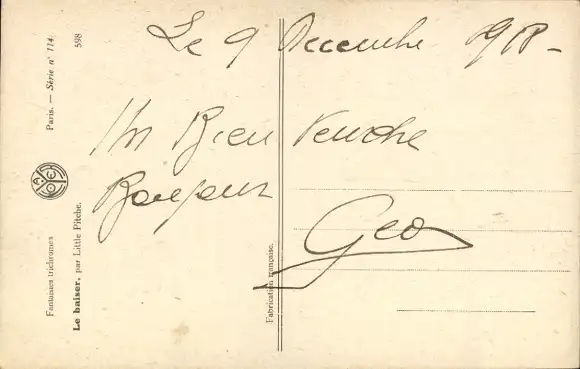 Le 9 Decembre 1918-
Un Bien Tendre
Bonjour
Geo
Fantaisies trichromes
Paris. — Série n° 114
598
Le baiser, par Little Pitche.
Fabrication française.